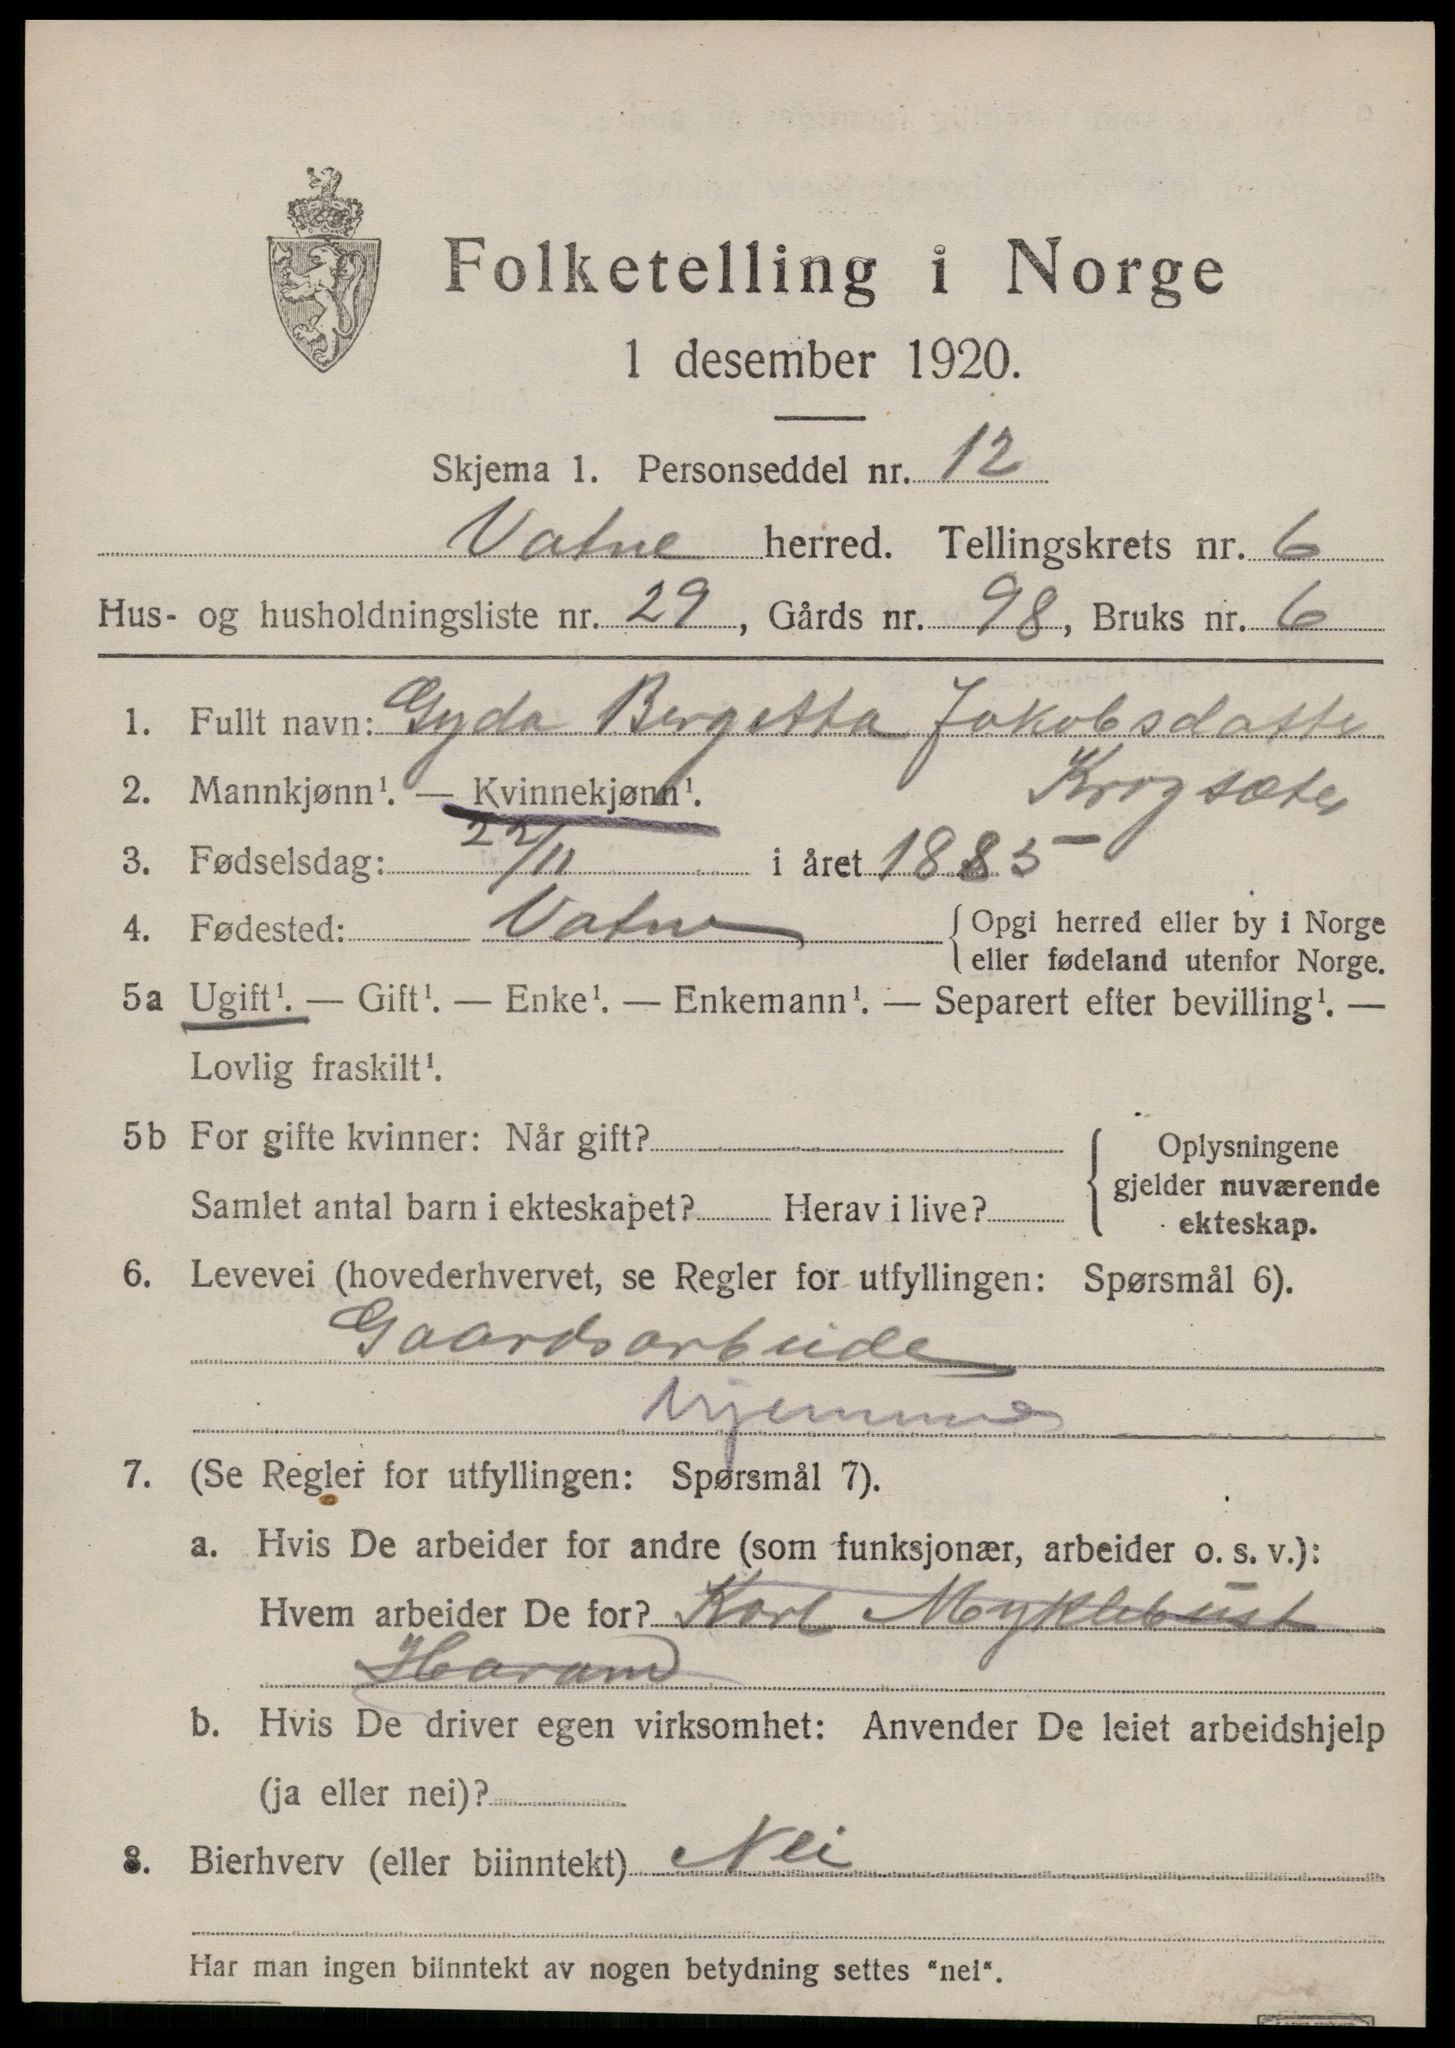 Folketelling i Norge
1 desember 1920.
Skjema 1. Personseddel nr. 12
Vatne herred. Tellingskrets nr. 6
Hus- og husholdningsliste nr. 29, Gårds nr. 98, Bruks nr. 6
1. Fullt navn: Gyda Bergetta Jakobsdatter
2. Mannkjønn¹. — Kvinnekjønn¹. Krogsæter
3. Fødselsdag: 22/11 i året 1885
4. Fødested: Vatne { Opgi herred eller by i Norge
eller fødeland utenfor Norge.
5a Ugift¹. — Gift¹. — Enke¹. — Enkemann¹. — Separert efter bevilling¹. —
Lovlig fraskilt¹.
5b For gifte kvinner: Når gift? { Oplysningene
gjelder nuværende
Samlet antal barn i ekteskapet? Herav i live? ekteskap.
6. Levevei (hovederhvervet, se Regler for utfyllingen: Spørsmål 6).
Gaardsarbeide
hjemme
7. (Se Regler for utfyllingen: Spørsmål 7).
a. Hvis De arbeider for andre (som funksjonær, arbeider o. s. v.):
Hvem arbeider De for? Karl Myklebust
Haram
b. Hvis De driver egen virksomhet: Anvender De leiet arbeidshjelp
(ja eller nei)?
8. Bierhverv (eller biinntekt) Nei
Har man ingen biinntekt av nogen betydning settes "nei".